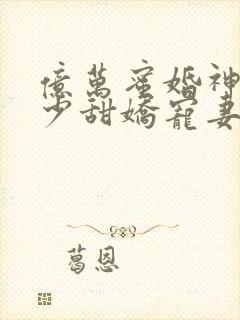 億萬蜜婚神
少甜嬌寵妻
葛恩